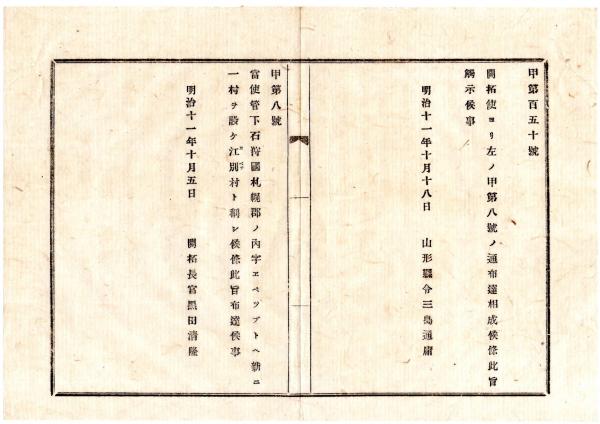 甲第百五十號
開拓使ヨリ左ノ甲第八號ノ通布達相成候條此旨
觸示候事
明治十一年十月十八日　山形縣令三島通庸
甲第八號
當使管下石狩國札幌郡ノ內字ヱベツブトヘ新ニ
一村ヲ設ケ江別村ト稱シ候條此旨布達候事
明治十一年十月五日　開拓長官黑田清隆